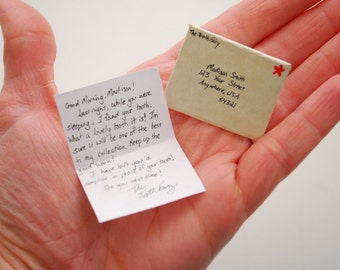 Good Morning, Madison!
Last night, while you were
sleeping, I found your tooth.
What a lovely tooth it is! I'm
sure it will be one of the best
in my collection. Keep up the
good work!
I have left you a
surprise in place of your tooth!
See you next time!
The Tooth Fairy
Madison Smith
123 Your Street
Anywhere, USA
54321